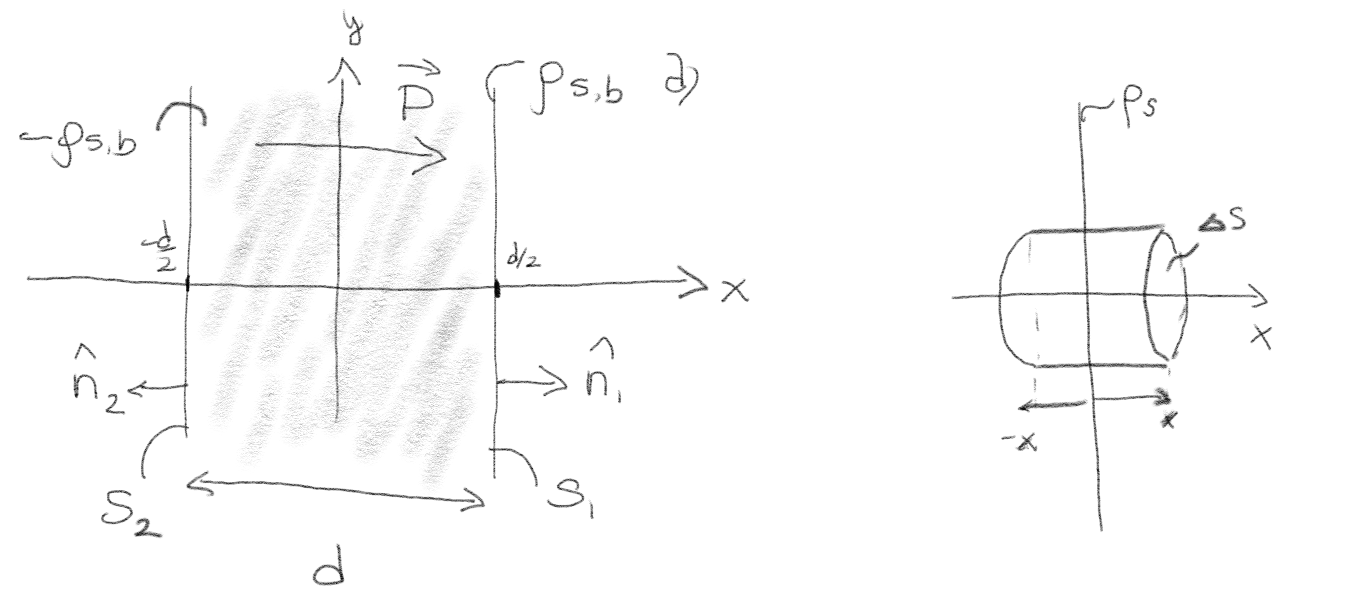 y
P⃗
ρs,b
a)
-ρs,b
-d/2
d/2
x
n̂2
n̂1
S2
S1
d
ρs
ΔS
x
-x
x